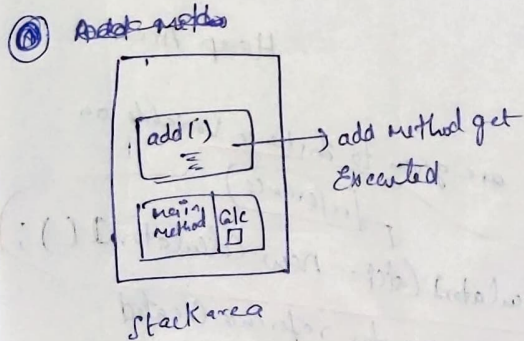 add()
add method get
Executed
main
method
Calc
Stack area